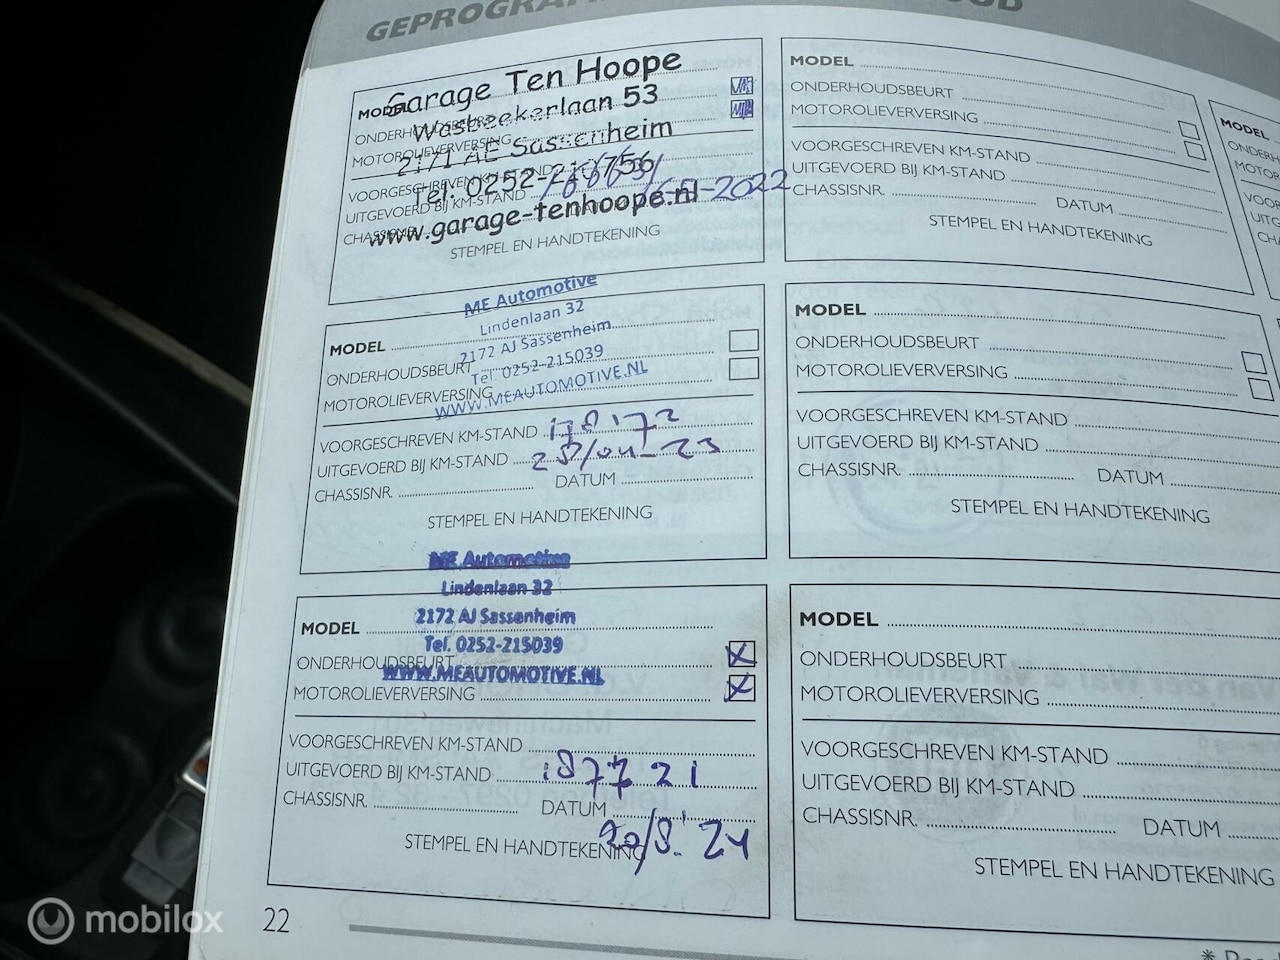 Garage Ten Hoope
Wasbeekerlaan 53
2171 AE Sassenheim
Tel. 0252-210756
www.garage-tenhoope.nl
MODEL
ONDERHOUDSBEURT
MOTOROLIEVERVERSING
VOORGESCHREVEN KM-STAND
UITGEVOERD BIJ KM-STAND
CHASSISNR.
-2022
STEMPEL EN HANDTEKENING
MODEL
ONDERHOUDSBEURT
MOTOROLIEVERVERSING
VOORGESCHREVEN KM-STAND
UITGEVOERD BIJ KM-STAND
CHASSISNR. DATUM
STEMPEL EN HANDTEKENING
MODEL
ME Automotive
Lindenlaan 32
2172 AJ Sassenheim
Tel. 0252-215039
WWW.MEAUTOMOTIVE.NL
MODEL
ONDERHOUDSBEURT
MOTOROLIEVERVERSING
VOORGESCHREVEN KM-STAND 178172
UITGEVOERD BIJ KM-STAND
CHASSISNR. DATUM
STEMPEL EN HANDTEKENING
MODEL
ONDERHOUDSBEURT
MOTOROLIEVERVERSING
VOORGESCHREVEN KM-STAND
UITGEVOERD BIJ KM-STAND
CHASSISNR. DATUM
STEMPEL EN HANDTEKENING
ME Automotive
Lindenlaan 32
2172 AJ Sassenheim
Tel. 0252-215039
WWW.MEAUTOMOTIVE.NL
MODEL
ONDERHOUDSBEURT
MOTOROLIEVERVERSING
VOORGESCHREVEN KM-STAND
UITGEVOERD BIJ KM-STAND 187721
CHASSISNR. DATUM
20/8.'24
STEMPEL EN HANDTEKENING
MODEL
ONDERHOUDSBEURT
MOTOROLIEVERVERSING
VOORGESCHREVEN KM-STAND
UITGEVOERD BIJ KM-STAND
CHASSISNR. DATUM
STEMPEL EN HANDTEKENING
22
mobilox